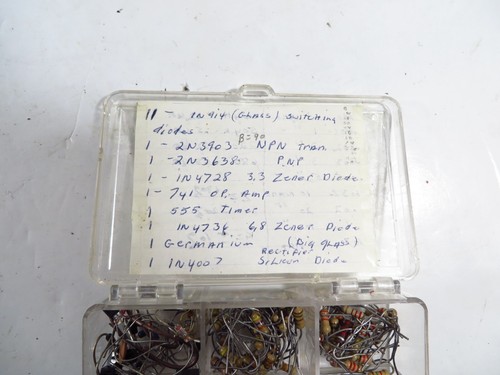 11 - 1N914 (GLASS) switching
diodes
β=90
1 - 2N3903 NPN Tran
1 - 2N3638 PNP
1 - 1N4728 3,3 Zener Diode
1 - 741 OP. Amp
1 555 Timer
1 1N4736 6,8 Zener Diode
1 Germanium (Big glass)
Rectifier
1 1N4007 Silicon Diode